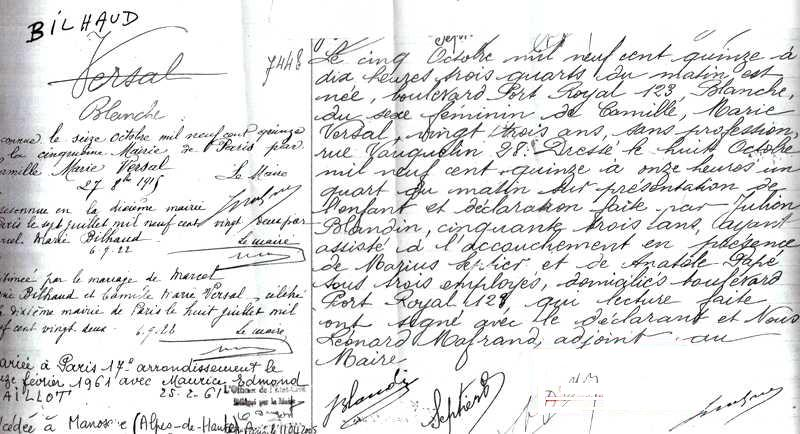 BILHAUD
Versal
7448
Blanche
connue le seize Octobre mil neuf cent quinze
la cinquième Mairie de Paris par
amille Marie Versal
27 8bre 1915 Le Maire
econnue en la dixième mairie
aris le sept juillet mil neuf cent vingt deux par
rcel Marie Bilhaud
6.9.22 Le maire
itimée par le mariage de Marcel
rie Bilhaud et Camille Marie Versal, célébré
dixième mairie de Paris le huit juillet mil
uf cent vingt deux. 6.9.22 Le maire
ariée à Paris 17e arrondissement le
février 1961 avec Maurice Edmond
AILLOT 25.2.61
L'Officier de l'Etat-Civil
Délégué par le Maire
cédée à Manosque (Alpes-de-Haute
Le cinq Octobre mil neuf cent quinze à
dix heures trois quarts du matin est
née, boulevard Port Royal 123 Blanche,
du sexe féminin de Camille, Marie
Versal, vingt trois ans, sans profession,
rue Vauquelin 28. Dressé le huit Octobre
mil neuf cent quinze à onze heures un
quart du matin sur présentation de
l'enfant et déclaration faite par Julien
Blandin, cinquante trois ans, ayant
assisté à l'accouchement en présence
de Marius Septier et de Anatole Papé
tous trois employés, domiciliés boulevard
Port Royal 123 qui lecture faite
ont signé avec le déclarant et Nous
Léonard Mafrand, adjoint au
Maire
Blandin